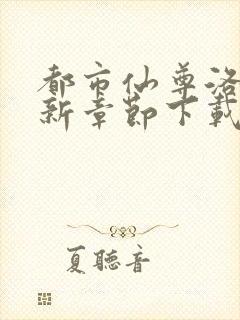 都市仙尊洛
新章節下載
夏聽音